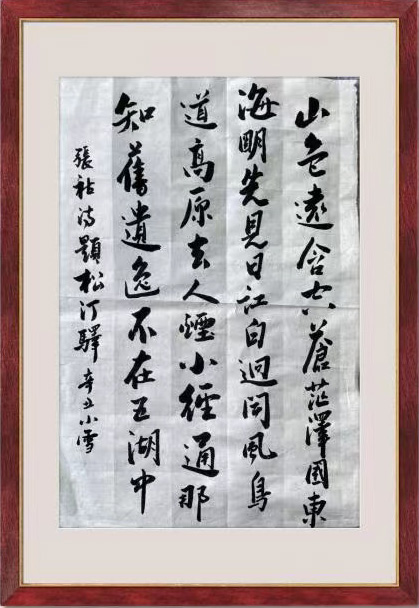 山色遠含空蒼茫澤國東
海明先見日江白迥聞風鳥
道高原去人煙小徑通那
知舊遺逸不在五湖中
張祜詩題松汀驛 辛丑小雪